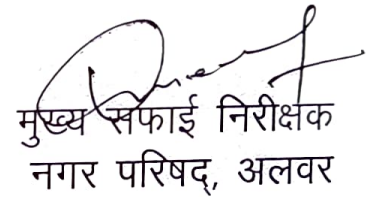 मुख्य सफाई निरीक्षक
नगर परिषद्, अलवर